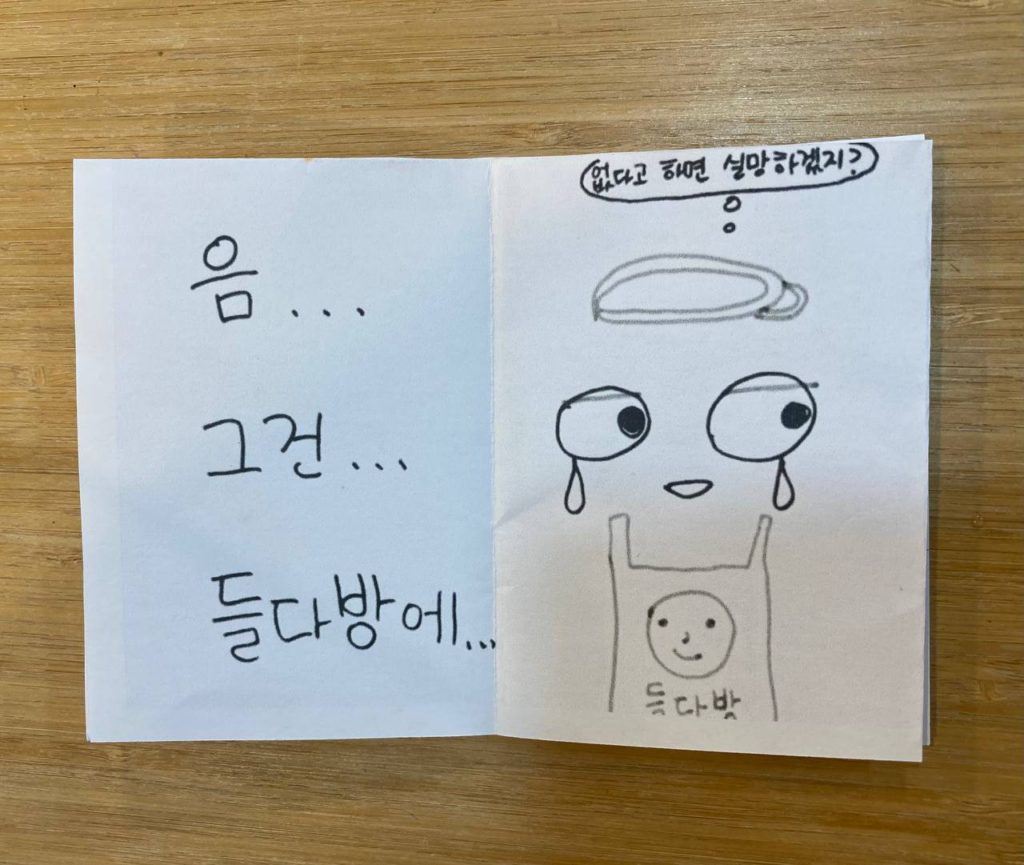 음...
그건...
들다방에...
없다고 하면 실망하겠지?
들다방